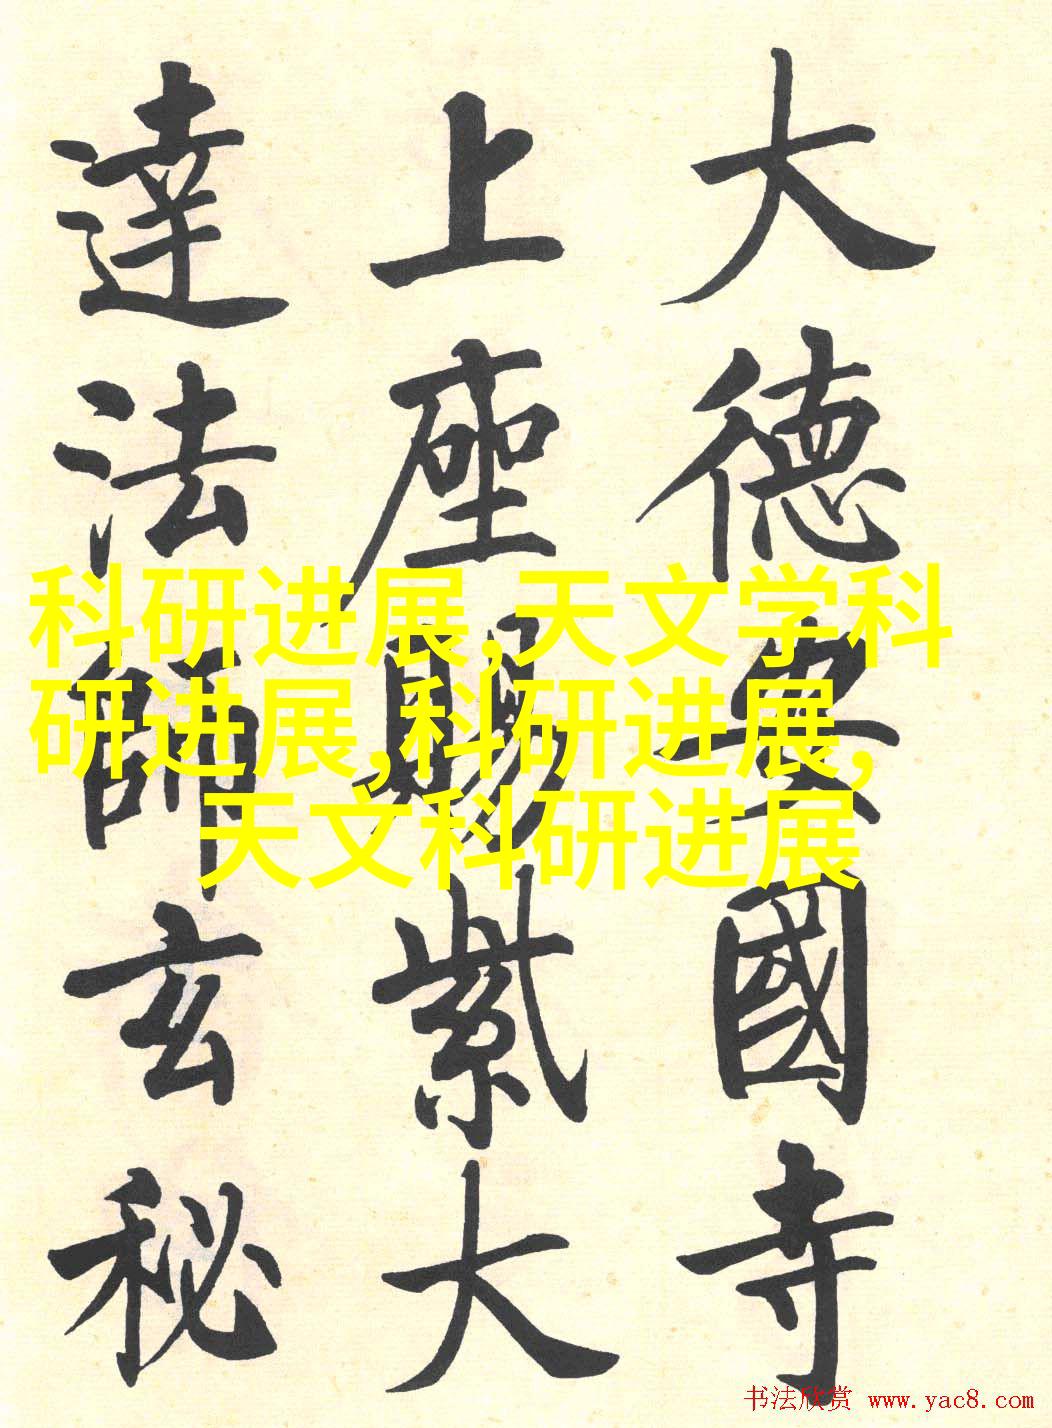 大德安國寺
上座賜紫大
達法師玄秘
科研进展,天文学科
研进展,科研进展,
天文科研进展
书法欣赏 www.yac8.com